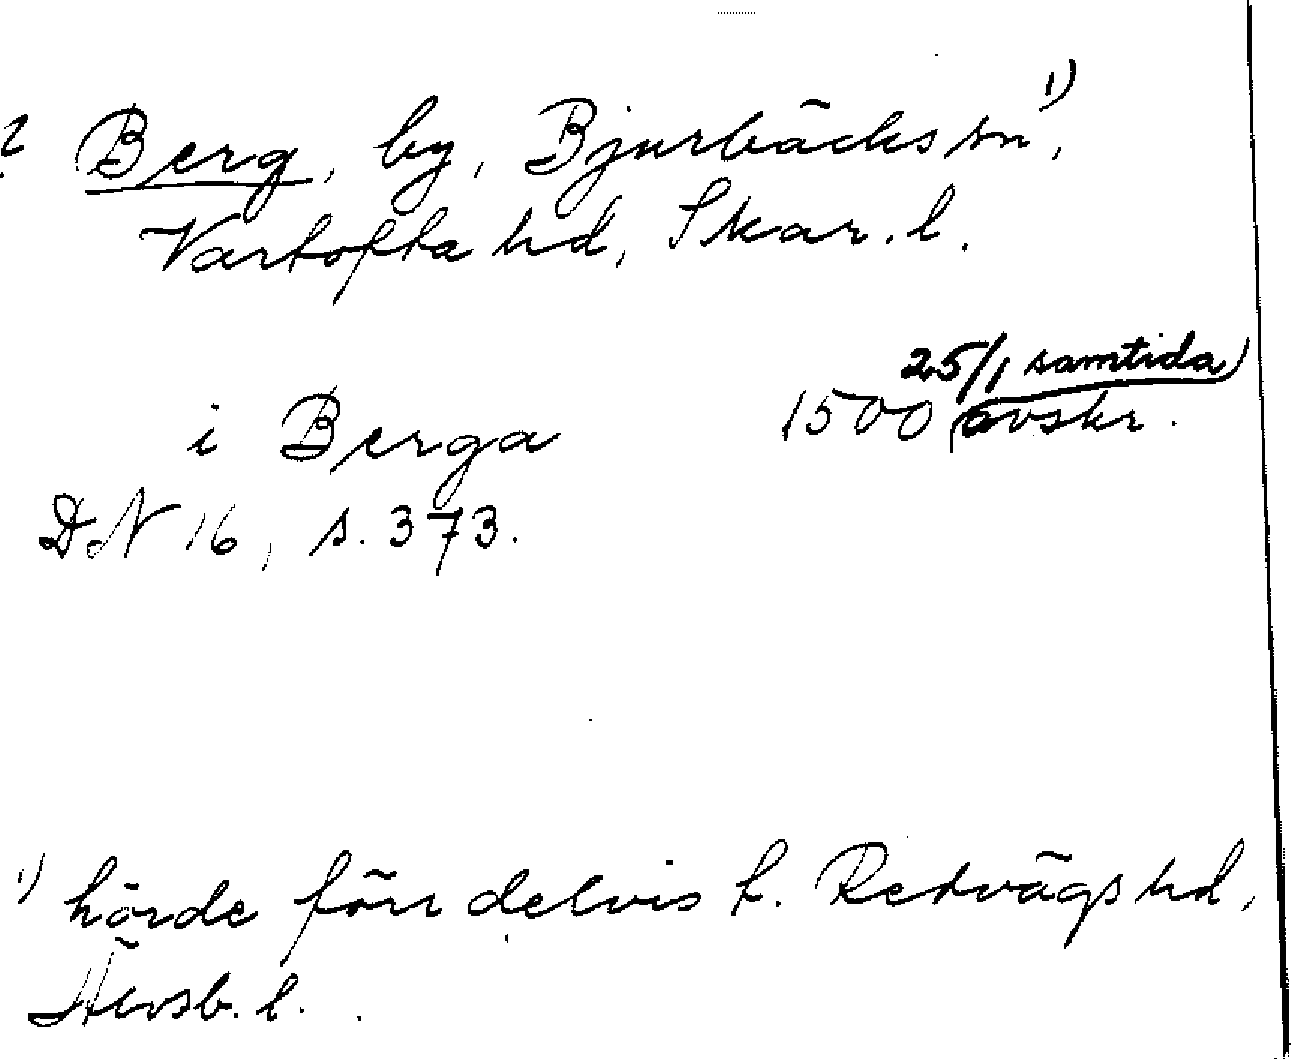 ? Berg, by, Bjurbäcks sn¹⁾,
Vartofta hd, Skar. l.
25/1 samtida
i Berga 1500 (avskr.
DN 16, s. 373.
¹⁾ hörde förr delvis t. Redvägs hd,
Älvsb. l.